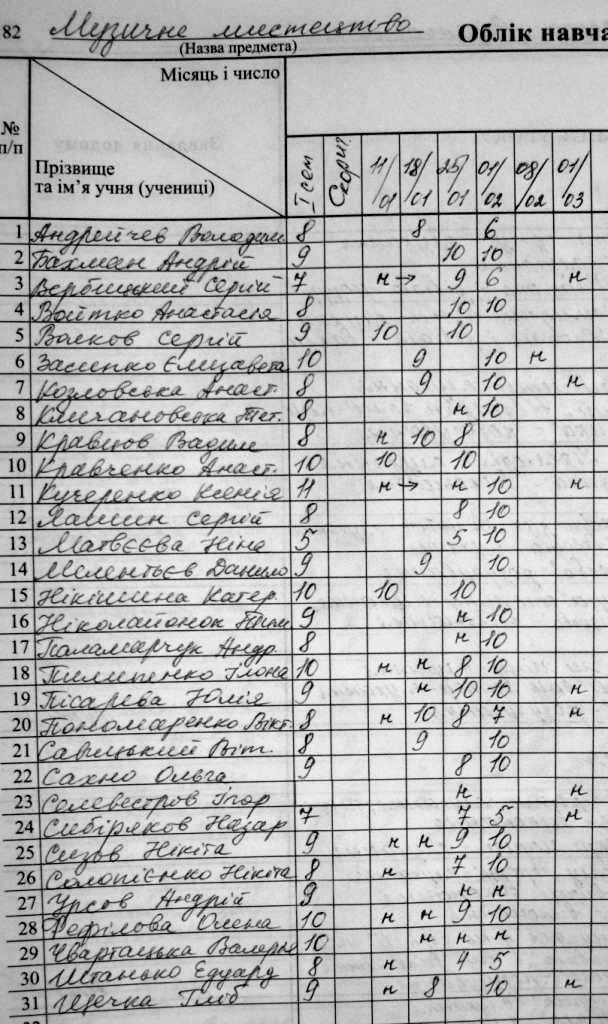 82 Музичне мистецтво Облік навча
(Назва предмета)
Місяць і число
№ п/п
Прізвище та ім’я учня (учениці)
I сем Скориг. 11/01 18/01 25/01 01/02 08/02 01/03
1 Андрейчев Володим 8 8 6
2 Бахман Андрій 9 10 10
3 Вербицький Сергій 7 н → 9 6 н
4 Войтко Анастасія 8 10 10
5 Волков Сергій 9 10 10
6 Засенко Єлизавета 10 9 10 н
7 Козловська Анаст. 8 9 10 н
8 Климчановська Тет. 8 н 10
9 Кравцов Вадим 8 н 10 8
10 Кравченко Анаст. 10 10 10
11 Кучеренко Ксенія 11 н → н 10 н
12 Лашин Сергій 8 8 10
13 Матвєєва Ніна 5 5 10
14 Мілентьєв Данило 9 9 10
15 Нікішина Катер. 10 10 10
16 Ніколайонок 9 н 10
17 Паламарчук Андр. 8 н 10
18 Пилипенко Ілона 10 н н 8 10
19 Пісарєва Юлія 9 н 10 10 н
20 Пономаренко Вікт. 8 н 10 8 7 н
21 Савицький Віт. 8 9 10
22 Сахно Ольга 9 8 10
23 Селевестров Ігор н н
24 Сибіряков Назар 7 7 5 н
25 Сизов Нікіта 9 н н 9 10
26 Солопієнко Нікіта 8 н 7 10
27 Урсов Андрій 9 н н
28 Фефілова Олена 10 н н 9 10
29 Чвартацька Валерія 10 н н н
30 Штанько Едуард 8 н 4 5
31 Щечка Гліб 9 н 8 10 н